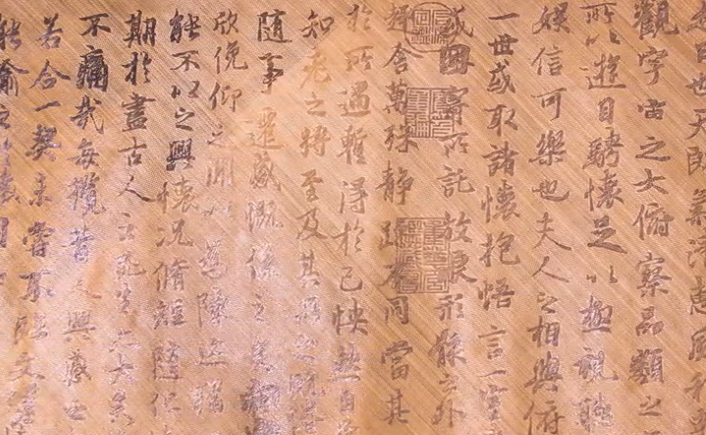 日也天朗氣清惠風和
觀宇宙之大俯察品類之
所以遊目騁懷足以極視聽
娛信可樂也夫人之相與俯
一世或取諸懷抱悟言一室
或因寄所託放浪形骸之外
趣舍萬殊靜躁不同當其
於所遇暫得於己怏然自
知老之將至及其所之既
隨事遷感慨係之矣向
欣俛仰之間以為陳迹猶
能不以之興懷況脩短隨化
期於盡古人云死生亦大矣
不痛哉每攬昔人興感之
若合一契未嘗不臨文嗟
能喻之於懷固